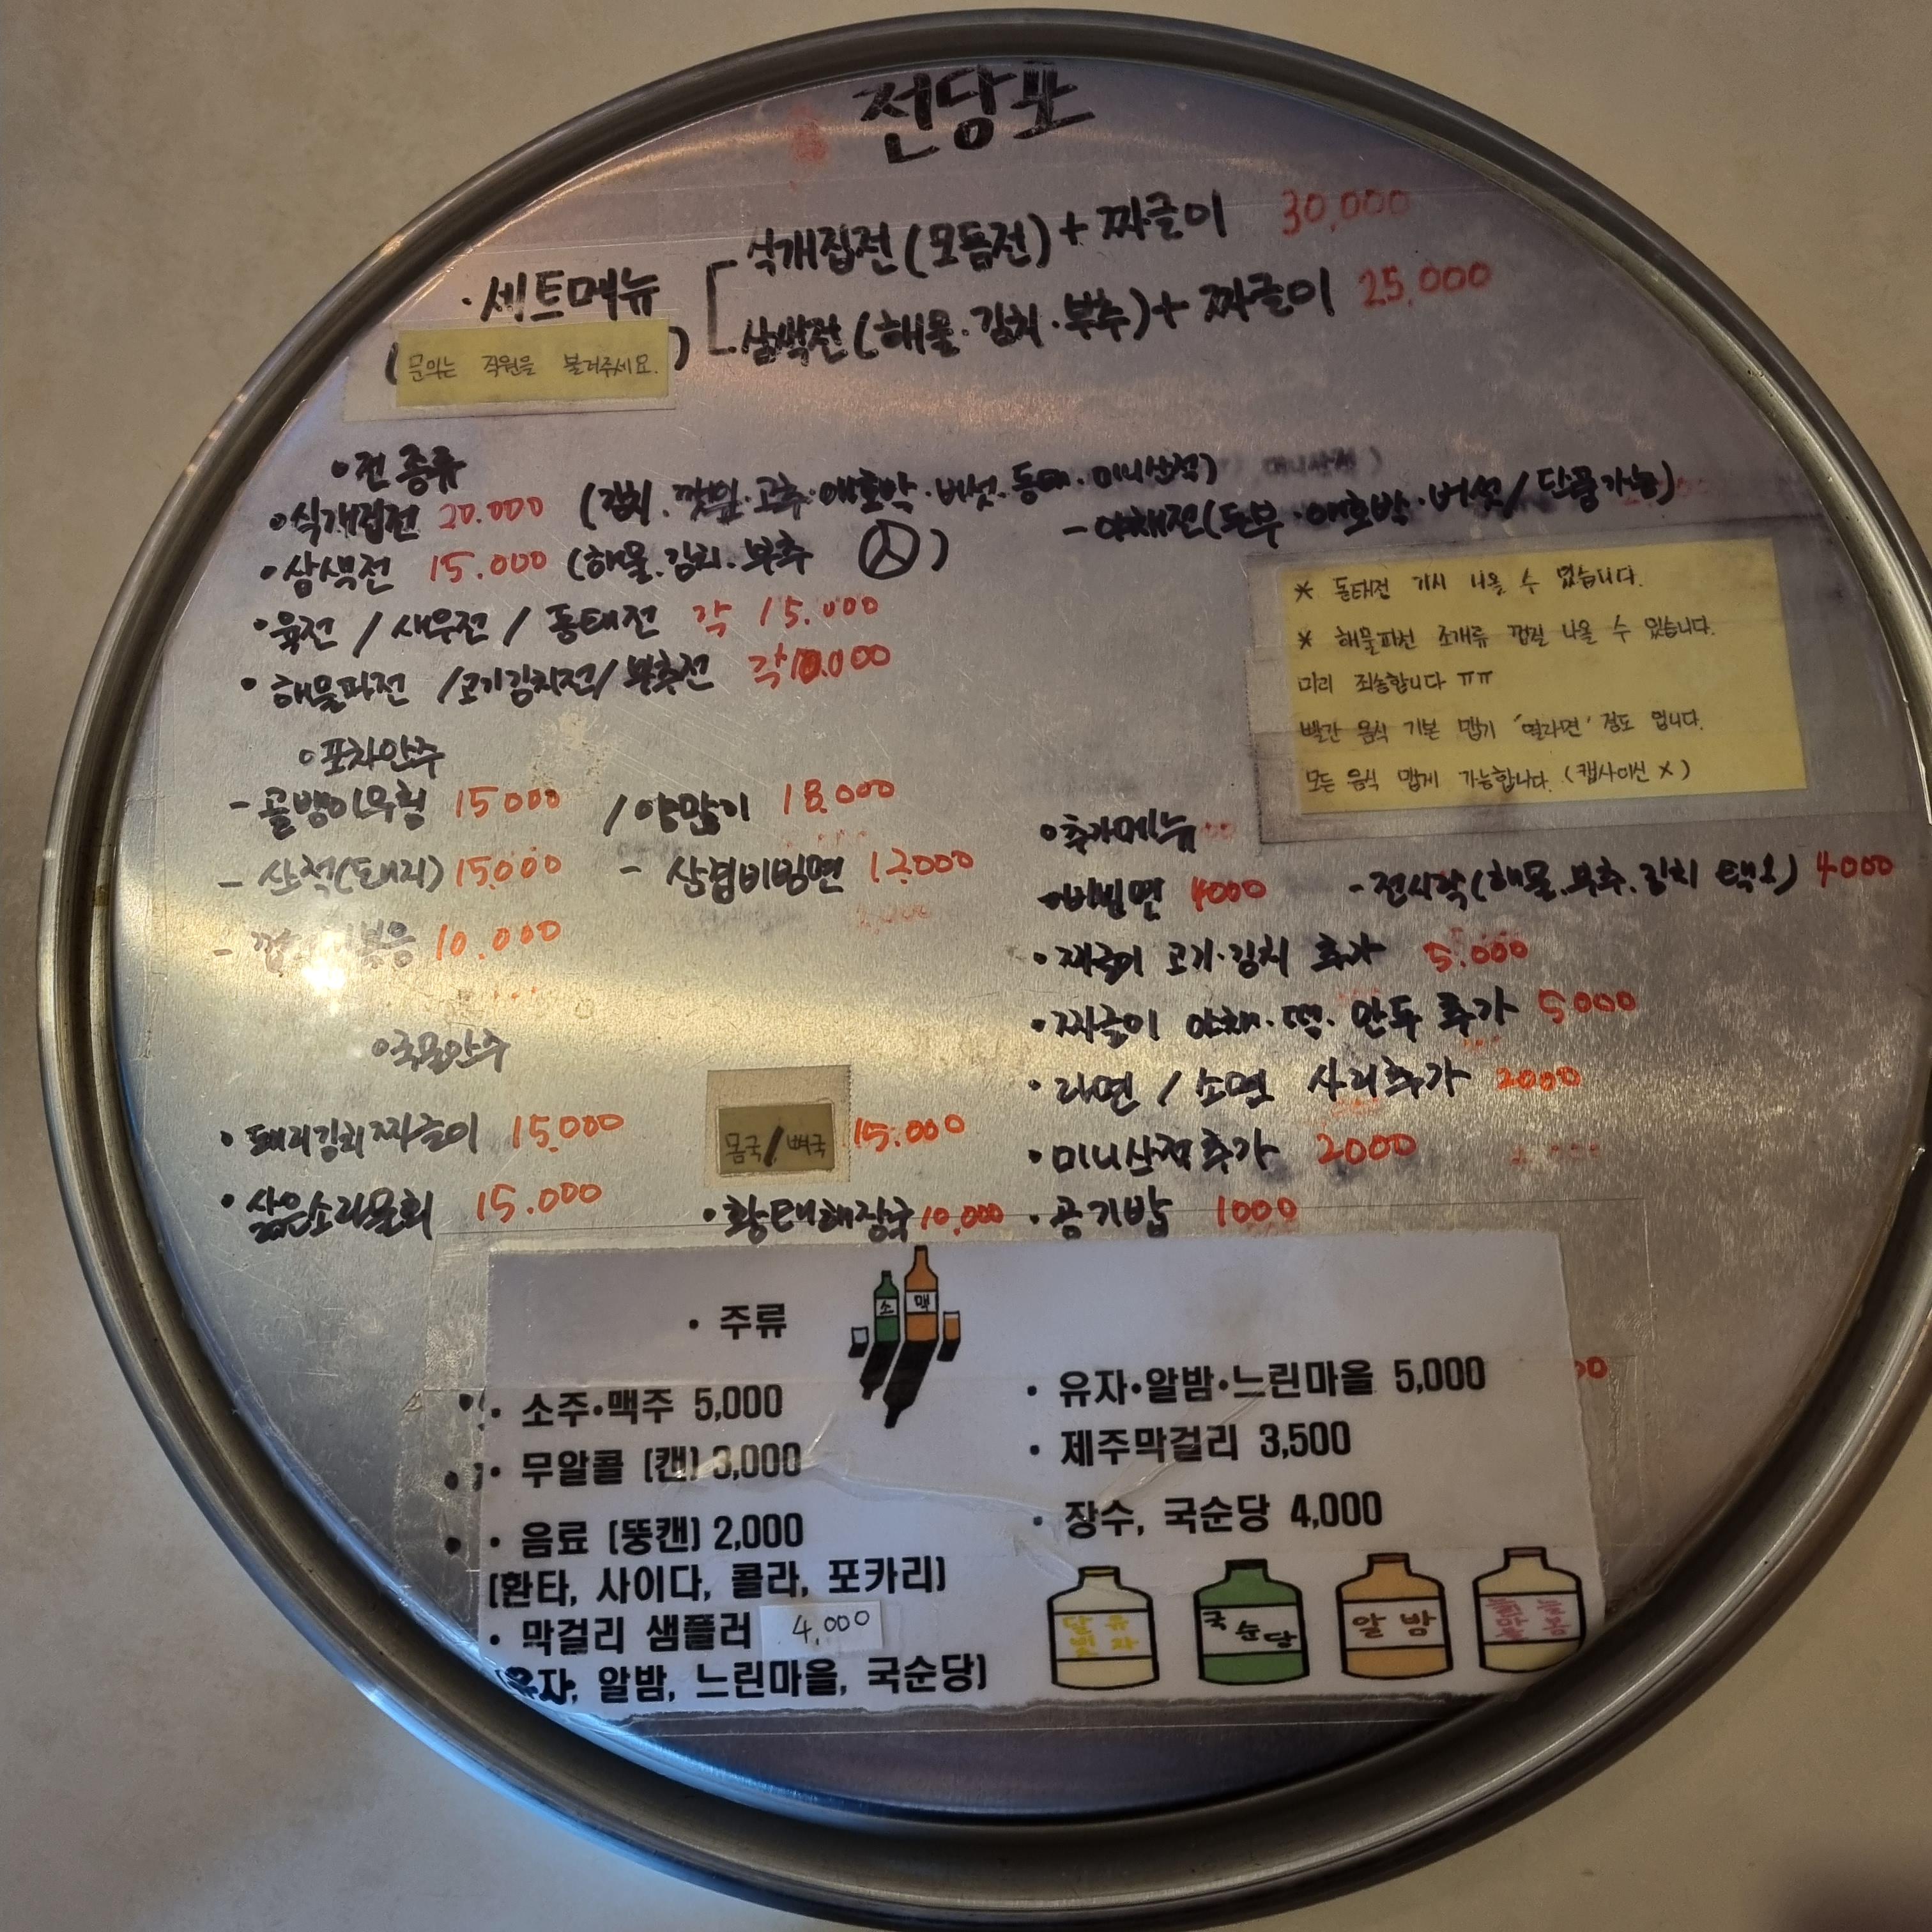 전당포
·세트메뉴
식개집전(모둠전)+ 짜글이 30,000
삼색전(해물·김치·부추)+ 짜글이 25,000
(문의는 직원을 불러주세요.)
전 종류
식개집전 20.000 (김치.깻잎.고추.애호박.버섯.동태.미니산적)
- 야채전(두부·애호박·버섯/단품가능)
삼색전 15.000 (해물.김치.부추)
육전 / 새우전 / 동태전 각 15.000
해물파전 /고기김치전/ 부추전 각10.000
* 동태전 가시 나올 수 있습니다.
* 해물파전 조개류 껍질 나올 수 있습니다.
미리 죄송합니다 ㅠㅠ
빨간 음식 기본 맵기 '열라면' 정도 입니다.
모든 음식 맵게 가능합니다. (캡사이신 X)
포차안주
- 골뱅이무침 15000 / 양많이 18.000
- 산적(돼지) 15.000 - 삼겹비빔면 12.000
볶음 10.000
국물안주
· 돼지김치짜글이 15.000
몸국/뼈국 15.000
· 삶은소라물회 15.000
· 황태해장국 10,000
추가메뉴
비빔면 4000 - 전시락(해물.부추.김치 택1) 4000
· 짜글이 고기·김치 추가 5.000
· 짜글이 야채·떡·만두 추가 5000
· 라면 / 소면 사리추가 2000
· 미니산적추가 2000
· 공기밥 1000
· 주류
소 맥
· 소주·맥주 5,000
· 무알콜 (캔) 3,000
· 음료 (뚱캔) 2,000
(환타, 사이다, 콜라, 포카리)
· 막걸리 샘플러 4,000
(유자, 알밤, 느린마을, 국순당)
· 유자·알밤·느린마을 5,000
· 제주막걸리 3,500
· 장수, 국순당 4,000
유자
국순당
알밤